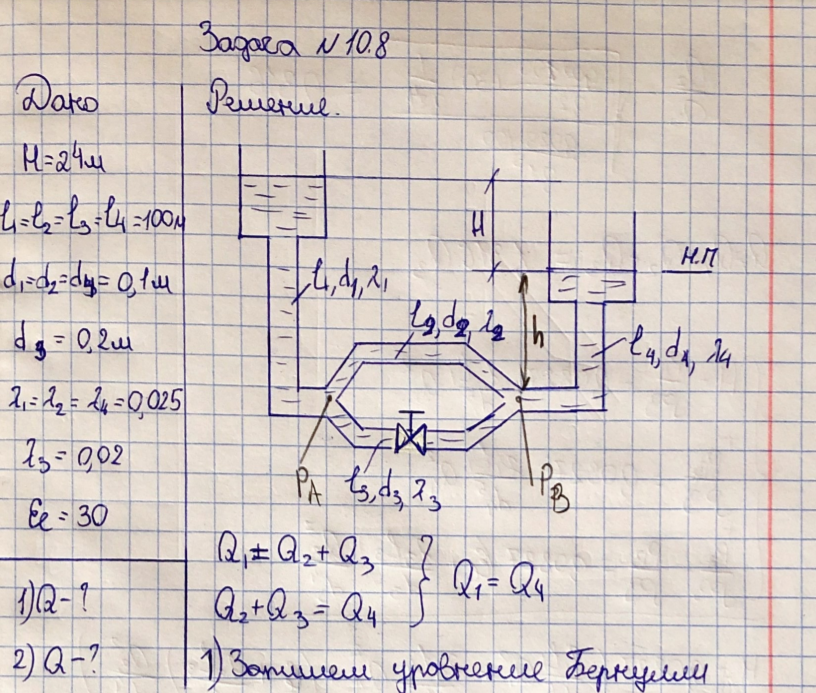 Задача N 10.8
Дано
Решение.
H=24м
l₁=l₂=l₃=l₄=100м
d₁=d₂=d₄=0,1м
d₃=0,2м
λ₁=λ₂=λ₄=0,025
λ₃=0,02
ξв=30
1)Q-?
2)Q-?
H
н.п
l₁,d₁,λ₁
l₂,d₂,λ₂
h
l₄,d₄,λ₄
PA
l₃,d₃,λ₃
PB
Q₁=Q₂+Q₃
Q₂+Q₃=Q₄
Q₁=Q₄
1)Запишем уравнение Бернулли